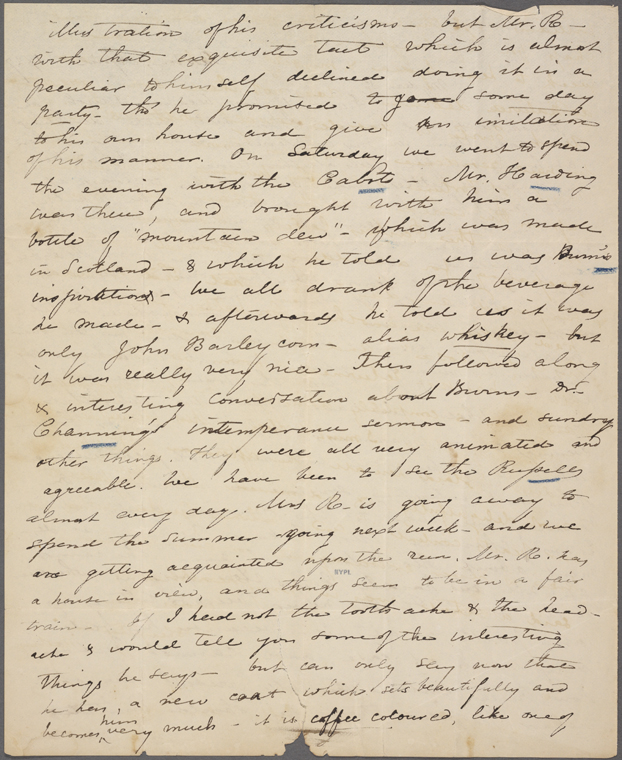 illustration of his criticisms - but Mr. R -
with that exquisite tact which is almost
peculiar to himself declined doing it in a
party - tho' he promised to some day
to his own house and give an imitation
of his manner. On Saturday we went to spend
the evening with the Cabots - Mr. Harding
was there, and brought with him a
bottle of "mountain dew" - which was made
in Scotland - & which he told us was Burn's
inspiration - We all drank of the beverage
he made - & afterwards he told us it was
only John Barleycorn - alias whiskey - but
it was really very nice - Then followed along
& interesting conversation about Burns - Dr.
Channing's intemperance sermon - and sundry
other things. They were all very animated and
agreeable. We have been to see the Russells
almost every day. Mrs R - is going away to
spend the summer - going next week - and we
are getting acquainted upon the run. Mr. R. has
a house in view, and things seem to be in a fair
NYPL
train - If I had not the tooth ache & the head-
ache I would tell you some of the interesting
things he says - but can only say now that
he has a new coat which sets beautifully and
becomes him very much - it is coffee coloured, like one of